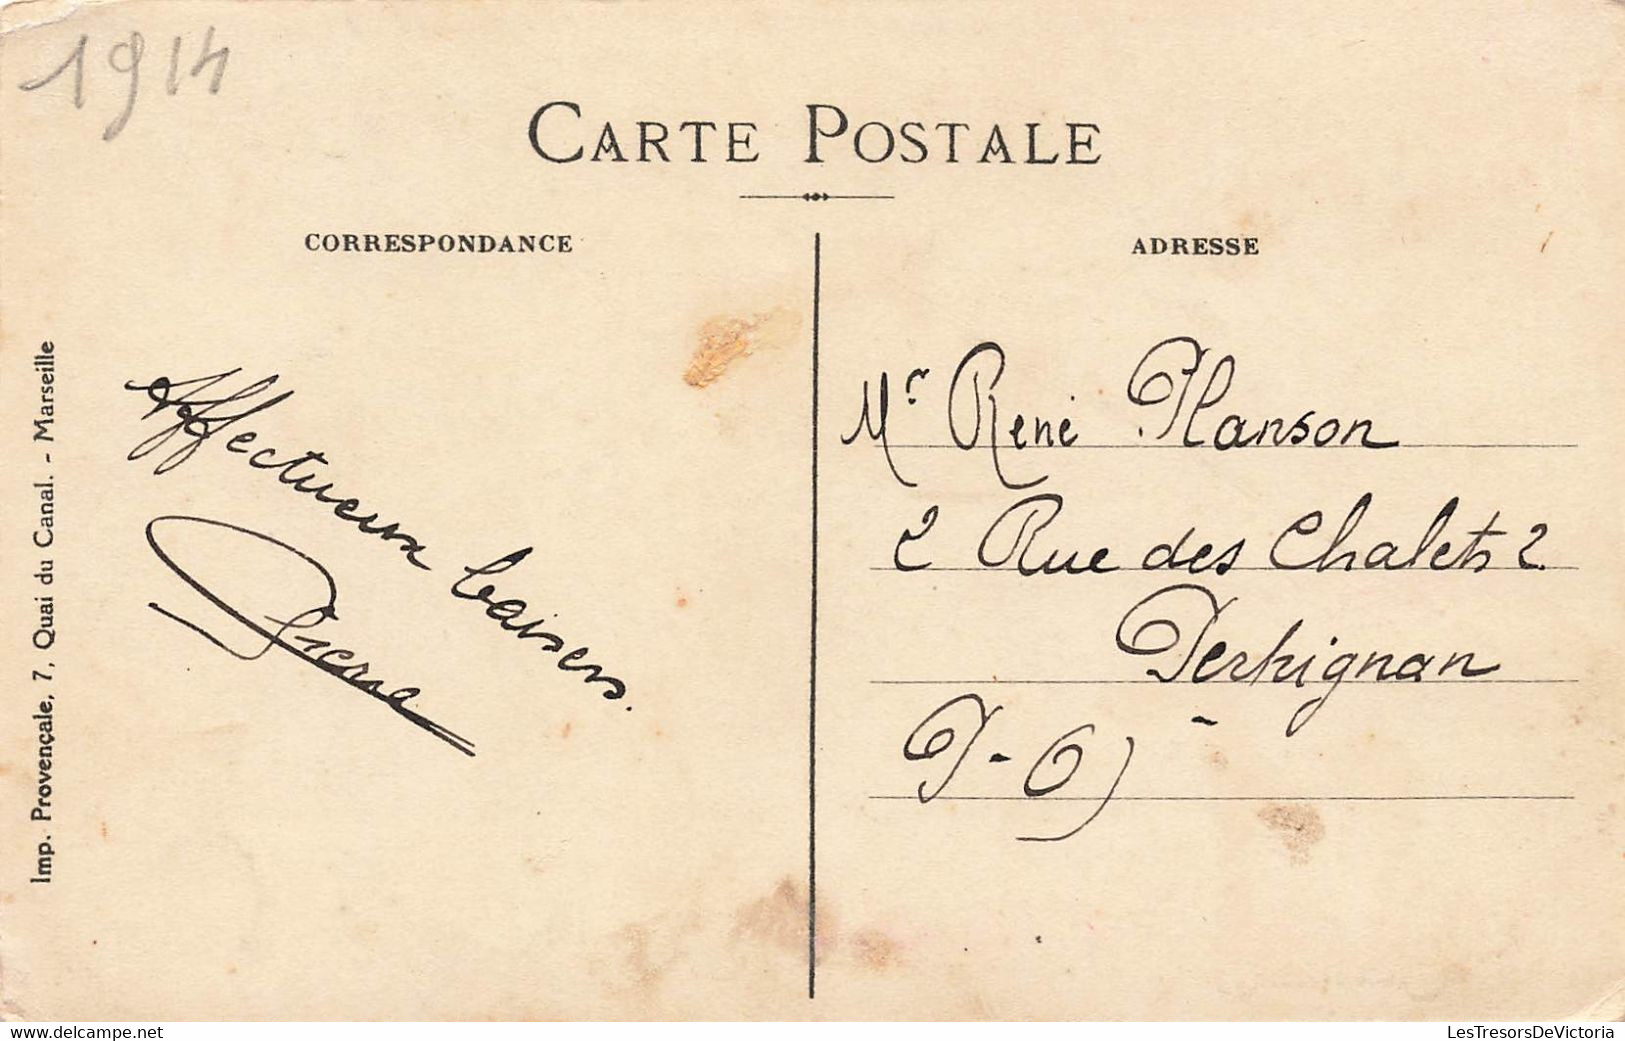 1914
CARTE POSTALE
CORRESPONDANCE
ADRESSE
Imp. Provençale, 7, Quai du Canal. - Marseille
Affectueux baisers.
Pierre
Mr René Planson
2 Rue des Chalets 2
Perpignan
P-O)
www.delcampe.net
LesTresorsDeVictoria